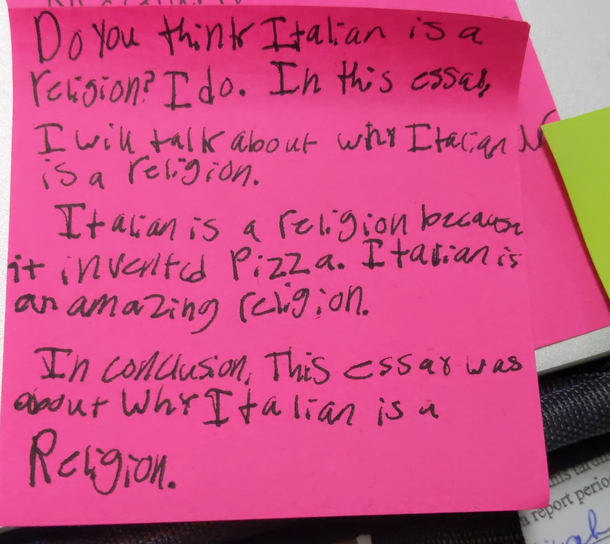 Do you think Italian is a
religion? I do. In this essay
I will talk about why Italian
is a religion.
Italian is a religion because
it invented Pizza. Italian is
an amazing religion.
In conclusion, This essay was
about Why Italian is a
Religion.
a report perio